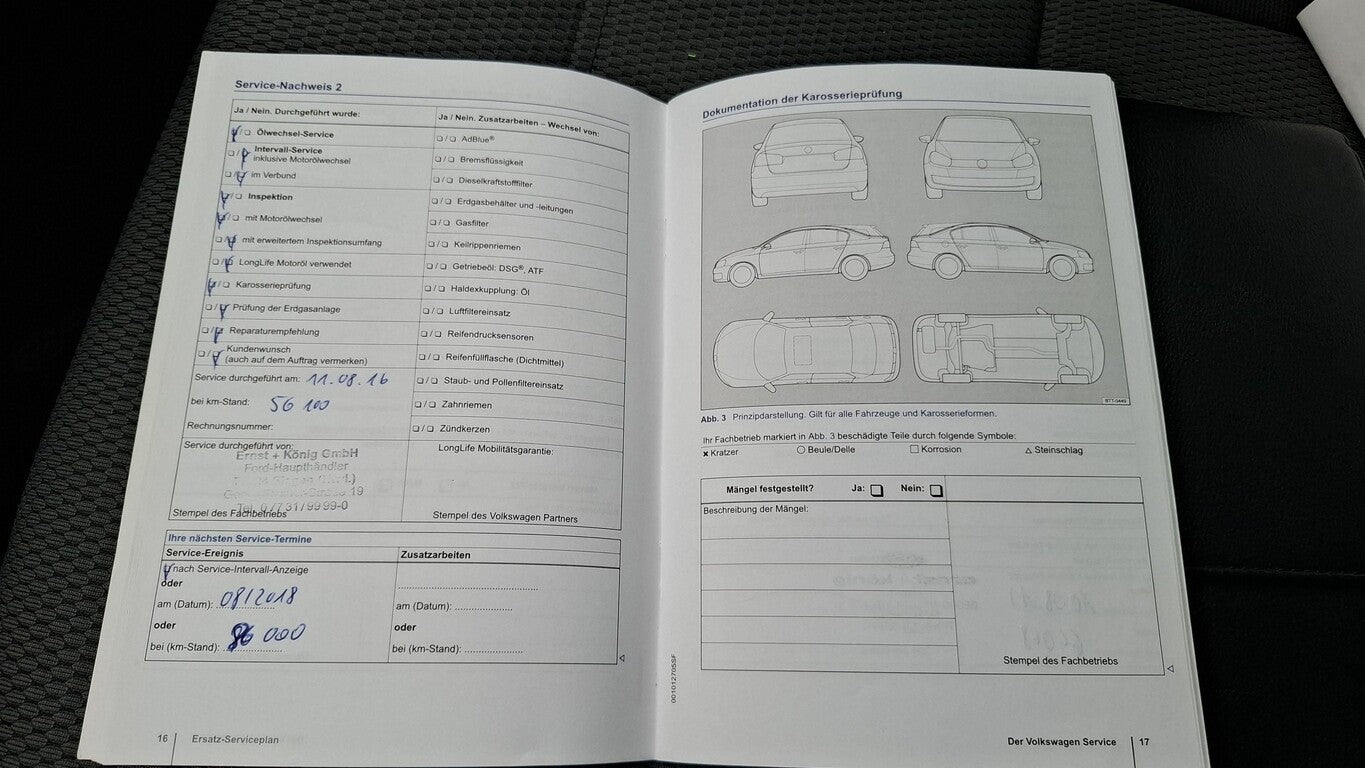 Service-Nachweis 2
Ja / Nein. Durchgeführt wurde:
Ölwechsel-Service
Intervall-Service
inklusive Motorölwechsel
im Verbund
Inspektion
mit Motorölwechsel
mit erweitertem Inspektionsumfang
LongLife Motoröl verwendet
Karosserieprüfung
Prüfung der Erdgasanlage
Reparaturempfehlung
Kundenwunsch
(auch auf dem Auftrag vermerken)
Service durchgeführt am: 11.08.16
bei km-Stand: 56 100
Rechnungsnummer:
Service durchgeführt von:
Ernst + König GmbH
Ford-Haupthändler
19
Tel. 07731/9999-0
Stempel des Fachbetriebs
Ja / Nein. Zusatzarbeiten – Wechsel von:
AdBlue®
Bremsflüssigkeit
Dieselkraftstofffilter
Erdgasbehälter und -leitungen
Gasfilter
Keilrippenriemen
Getriebeöl: DSG®, ATF
Haldexkupplung: Öl
Luftfiltereinsatz
Reifendrucksensoren
Reifenfüllflasche (Dichtmittel)
Staub- und Pollenfiltereinsatz
Zahnriemen
Zündkerzen
LongLife Mobilitätsgarantie:
Stempel des Volkswagen Partners
Ihre nächsten Service-Termine
Service-Ereignis
nach Service-Intervall-Anzeige
oder
am (Datum): 08/2018
oder
bei (km-Stand): 86 000
Zusatzarbeiten
am (Datum):
oder
bei (km-Stand):
16 Ersatz-Serviceplan
Dokumentation der Karosserieprüfung
B7T-0449
Abb. 3 Prinzipdarstellung. Gilt für alle Fahrzeuge und Karosserieformen.
Ihr Fachbetrieb markiert in Abb. 3 beschädigte Teile durch folgende Symbole:
x Kratzer ○ Beule/Delle □ Korrosion △ Steinschlag
Mängel festgestellt? Ja: Nein:
Beschreibung der Mängel:
Stempel des Fachbetriebs
001012705SF
Der Volkswagen Service 17